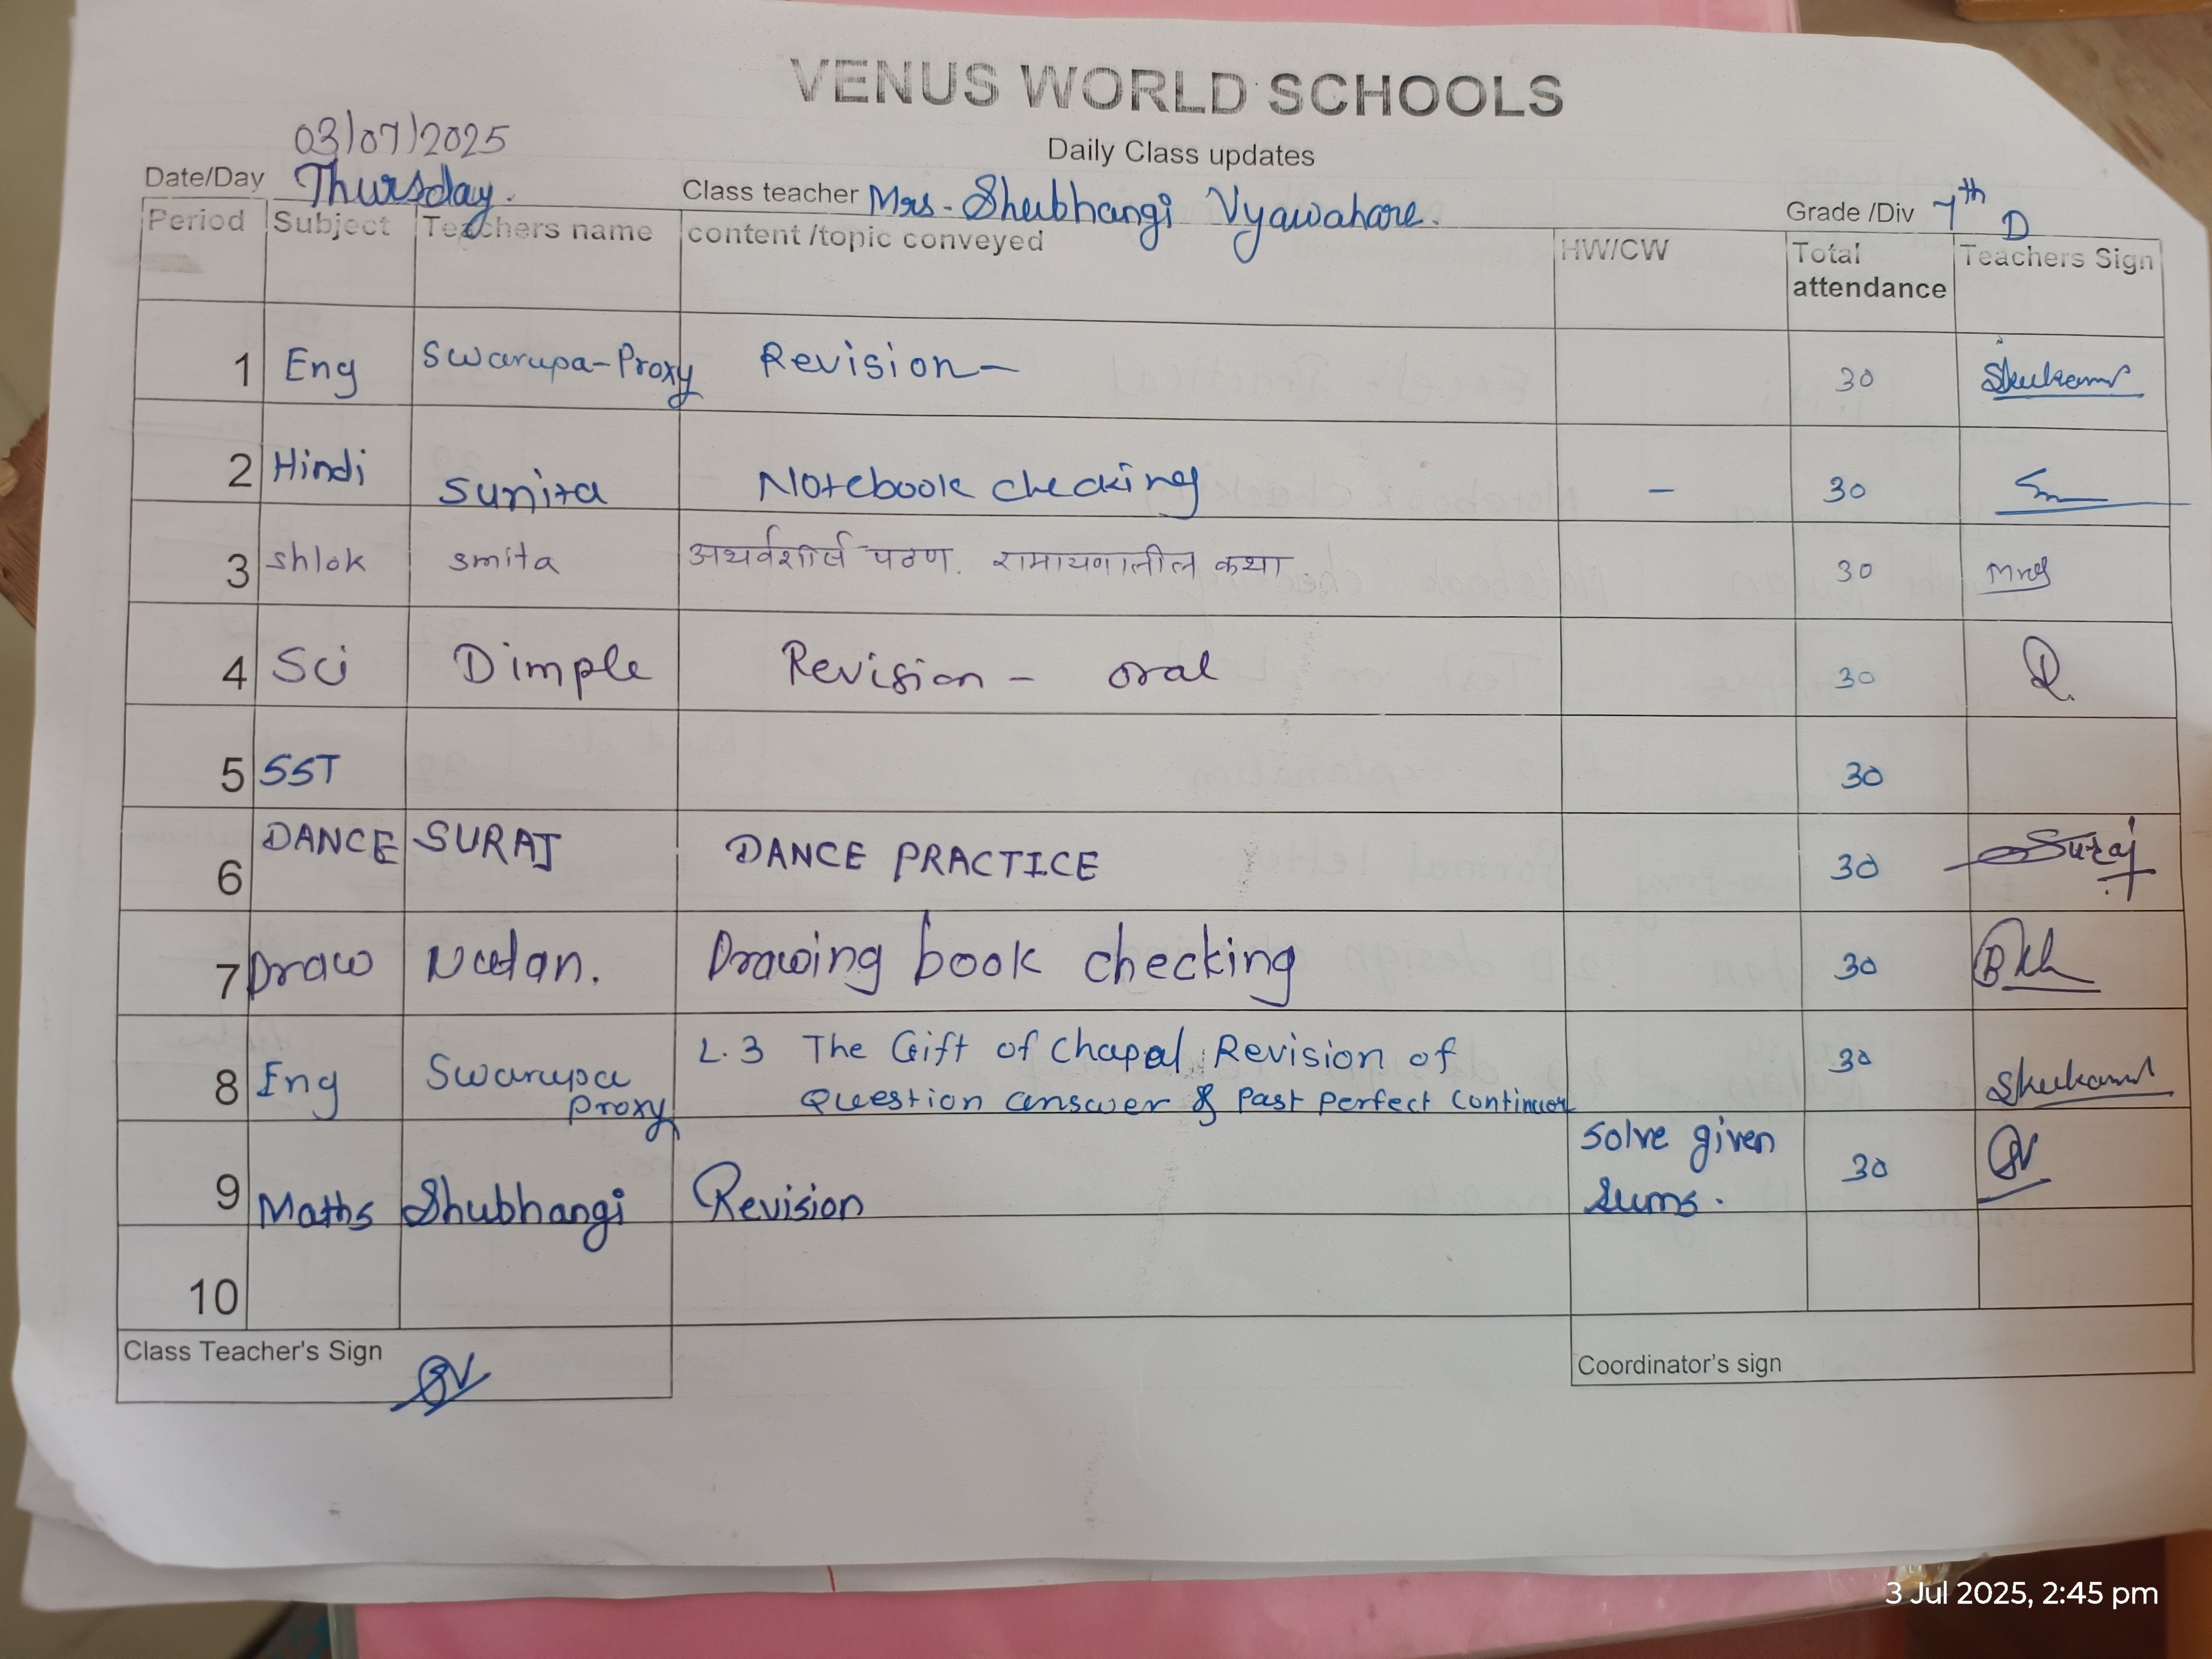 VENUS WORLD SCHOOLS
Daily Class updates
03/07/2025
Date/Day Thursday. Class teacher Mrs. Shubhangi Vyawahare. Grade /Div 7th D
Period Subject Teachers name content /topic conveyed HW/CW Total attendance Teachers Sign
1 Eng Swarupa-Proxy Revision- 30
2 Hindi Sunita Notebook checking - 30
3 shlok smita अथर्वशीर्ष पठण. रामायणातील कथा. 30
4 Sci Dimple Revision - oral 30
5 SST 30
6 DANCE SURAJ DANCE PRACTICE 30 Suraj
7 Draw Nutan. Drawing book checking 30
8 Eng Swarupa proxy L.3 The Gift of Chapal Revision of 30
Question answer & Past perfect continuou
9 Maths Shubhangi Revision Solve given sums. 30 SV
10
Class Teacher's Sign SV Coordinator's sign
3 Jul 2025, 2:45 pm